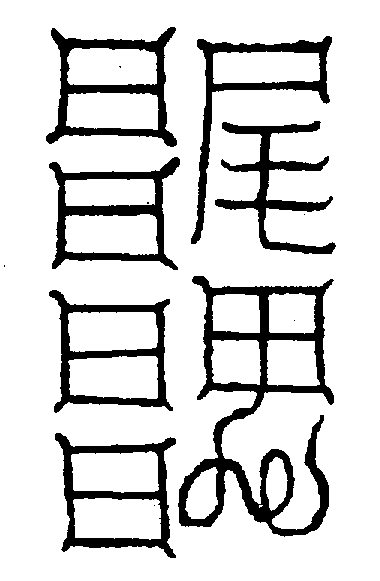 尾
日日日日